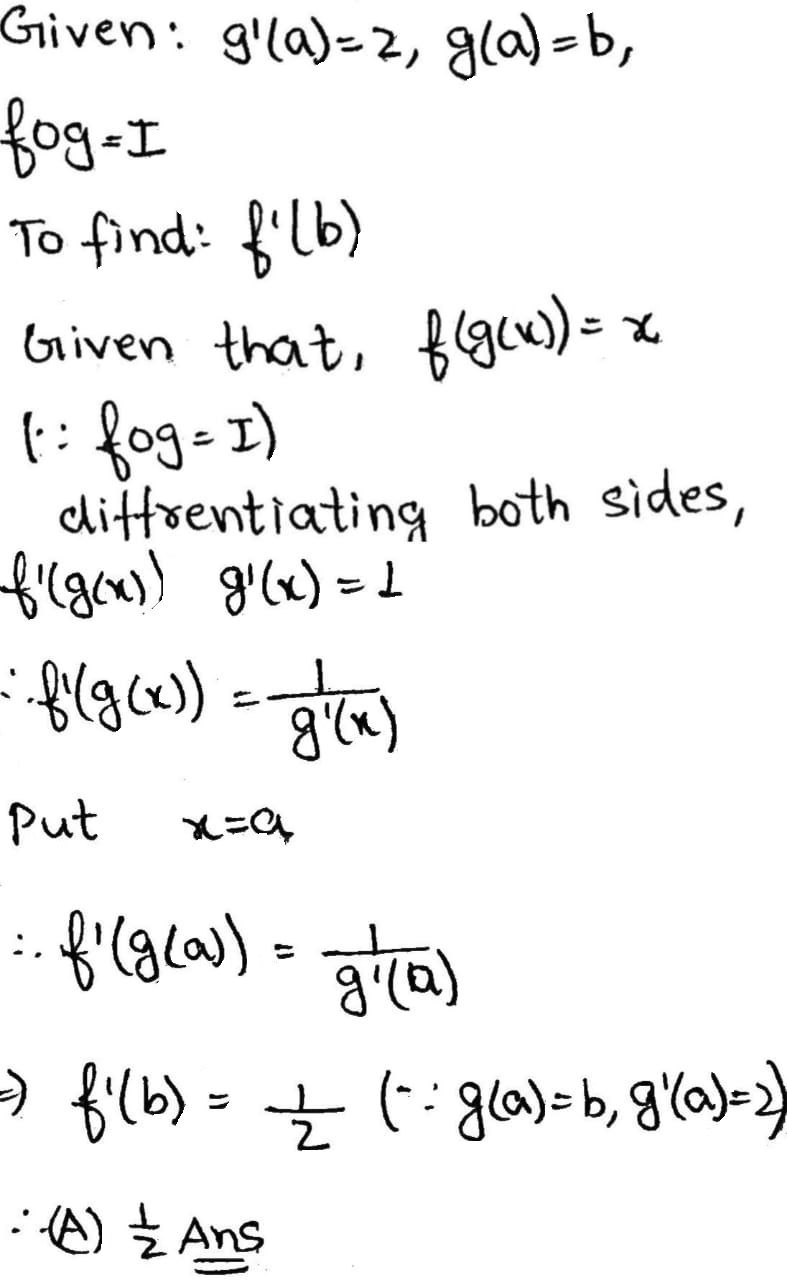 Given: g'(a)=2, g(a)=b,
fog=I
To find: f'(b)
Given that, f(g(x))= x
(∵ fog=I)
diffrentiating both sides,
f'(g(x)) g'(x) = 1
∴ f'(g(x)) = 1/g'(x)
Put x=a
∴ f'(g(a)) = 1/g'(a)
⇒ f'(b) = 1/2 (∵ g(a)=b, g'(a)=2)
∴ (A) 1/2 Ans